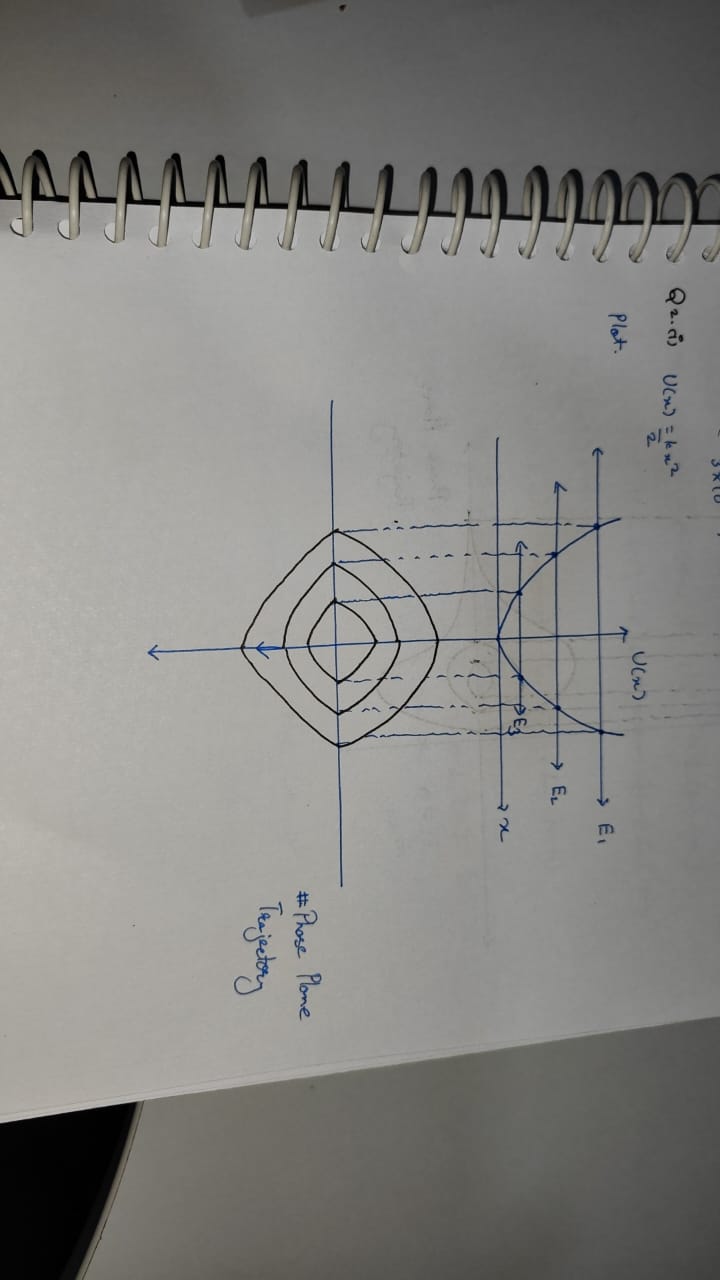 Q2.(i) U(x) = k/2 x²
Plot.
U(x)
E₁
E₂
E₃
x
# Phase Plane
Trajectory